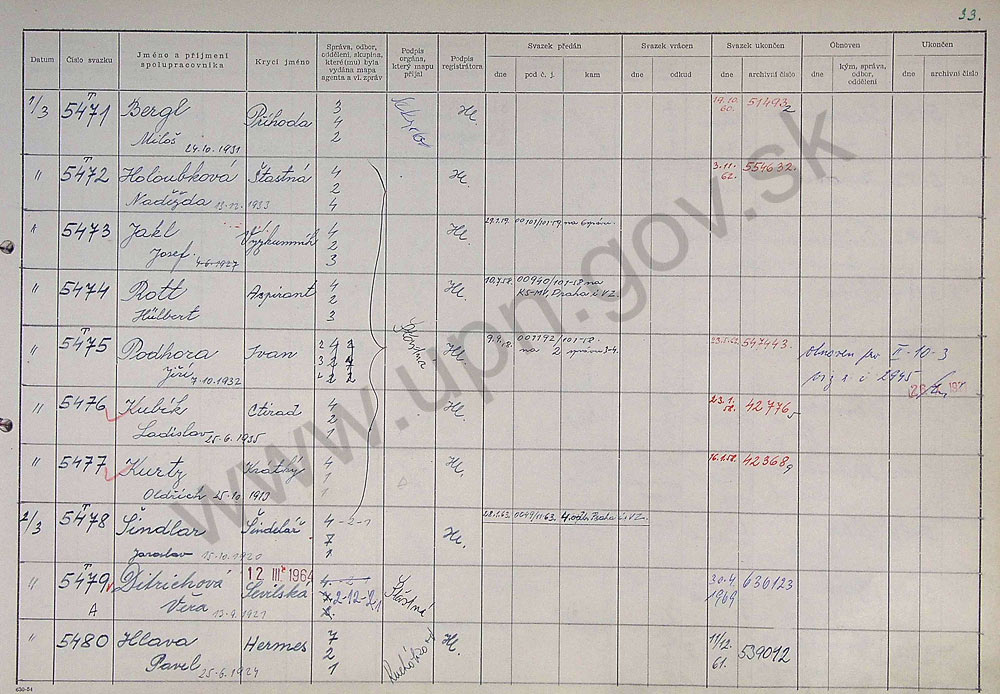 33.
Datum
Číslo svazku
Jméno a příjmení spolupracovníka
Krycí jméno
Správa, odbor, oddělení, skupina, které(mu) byla vydána mapa agenta a vl. zpráv
Podpis orgána, který mapu přijal
Podpis registrátora
Svazek předán
dne
pod č. j.
kam
Svazek vrácen
dne
odkud
Svazek ukončen
dne
archivní číslo
Obnoven
dne
kým, správa, odbor, oddělení
Ukončen
dne
archivní číslo
1/3 T 5471 Bergl Příhoda 3 Hl. 19.10. 51493
4 60. 2
Miloš 24.10.1931 2
" T 5472 Holoubková Šťastná 4 Hl. 3.11. 554632.
2 62.
Naděžda 13.12.1933 4
" 5473 Jakl Výzkumník 4 Hl. 00101/101-59. na 6 správu.
2
Josef. 4.6.1927 3
" 5474 Rott Aspirant 4 Hl. 10.7.58. 00940/101-58 na
2 KS-MV, Praha i VZ.
Hülbert 3
" T 5475 Podhora Ivan Šťastná Hl. 9.9.58. 001192/101-58. 547443. obnoven pro II-10-3
na 2 správu 3-4.
Jiří 7.10.1932 viz s. č 2945
" 5476 Kubík Ctirad 4 Hl. 23.1. 42776
2 58. 5
Ladislav 25.6.1935 1
" 5477 Kurtz Krátký 4 Hl. 16.1.58. 42368
1 9
Oldřich 25.10.1913 1
2/3 T 5478 Šindlar Šindelář 4-2-1 Hl. 28.1.63. 0049/11-63. 4. odb. Praha i VZ.
7
Jaroslav 15.10.1920 1
" T 5479 Ditrichová 12 III. 1964 4-2- Šťastná 30.4. 636123
A Věra 13.9.1921 Sevilska 2-12-21 1969
" 5480 Hlava Hermes 7 Hl. 11/12. 539012
2 61.
Pavel 25.6.1924 1
630-54
www.upn.gov.sk